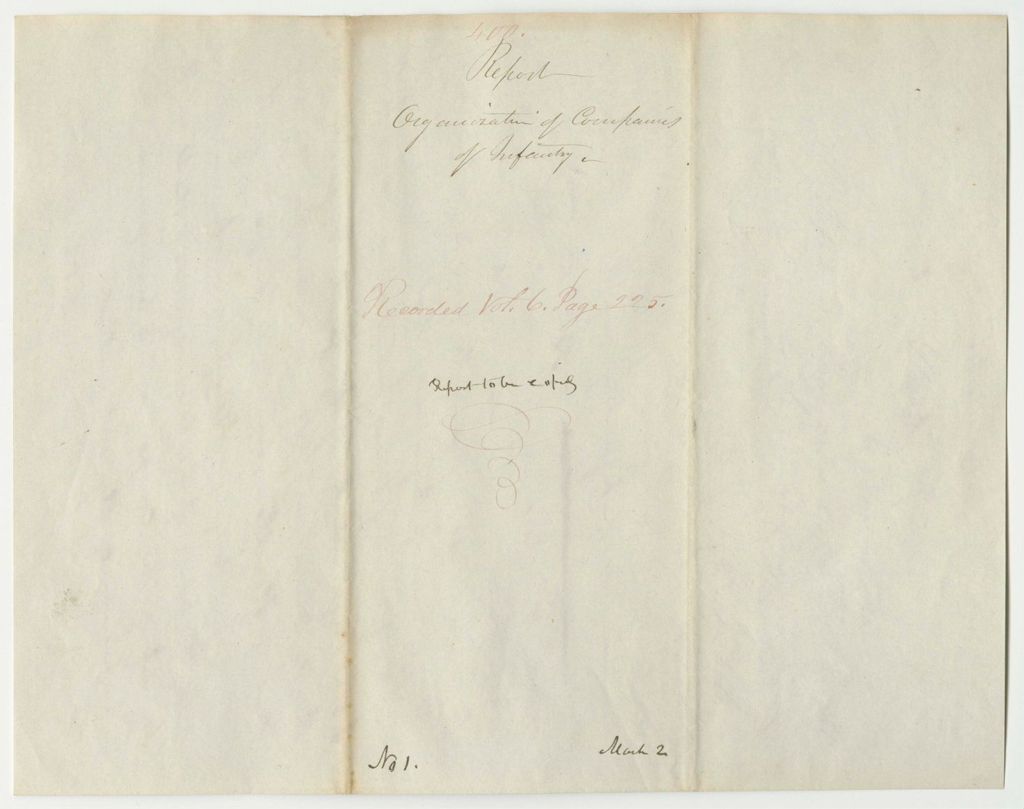 400.
Report
Organization of Companies
of Infantry.
Recorded Vol. 6. Page 225.
Report to be copied
No 1.
Mark 2